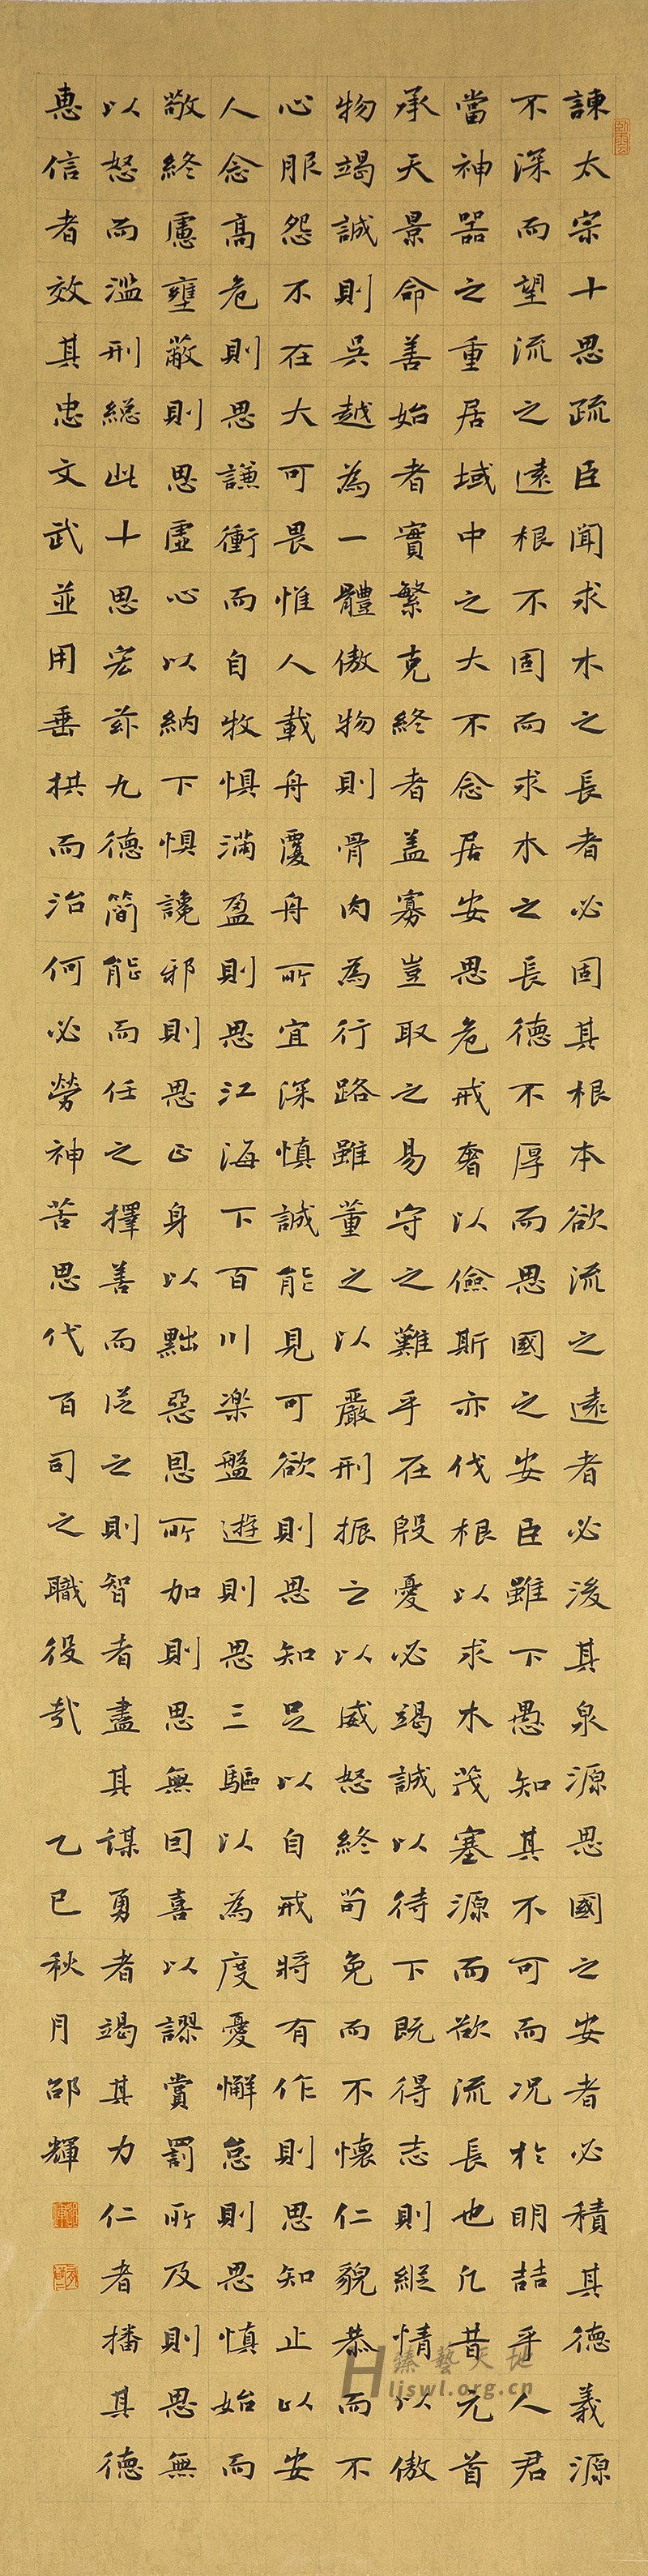 諫太宗十思疏臣聞求木之長者必固其根本欲流之遠者必浚其泉源思國之安者必積其德義源
不深而望流之遠根不固而求木之長德不厚而思國之安臣雖下愚知其不可而况於明喆乎人君
當神器之重居域中之大不念居安思危戒奢以儉斯亦伐根以求木茂塞源而欲流長也凡昔元首
承天景命善始者實繁克終者盖寡豈取之易守之難乎在殷憂必竭誠以待下既得志則縱情以傲
物竭誠則吳越為一體傲物則骨肉為行路雖董之以嚴刑振之以威怒終苟免而不懷仁貌恭而不
心服怨不在大可畏惟人載舟覆舟所宜深慎誠能見可欲則思知足以自戒將有作則思知止以安
人念高危則思謙衝而自牧懼滿盈則思江海下百川楽盤遊則思三驅以為度憂懈怠則思慎始而
敬終慮壅蔽則思虛心以納下懼讒邪則思正身以黜惡恩所加則思無因喜以謬賞罰所及則思無
以怒而濫刑總此十思宏茲九德簡能而任之擇善而從之則智者盡其謀勇者竭其力仁者播其德
惠信者效其忠文武並用垂拱而治何必勞神苦思代百司之職役哉 乙巳秋月邵輝
臻藝天地
ljswl.org.cn